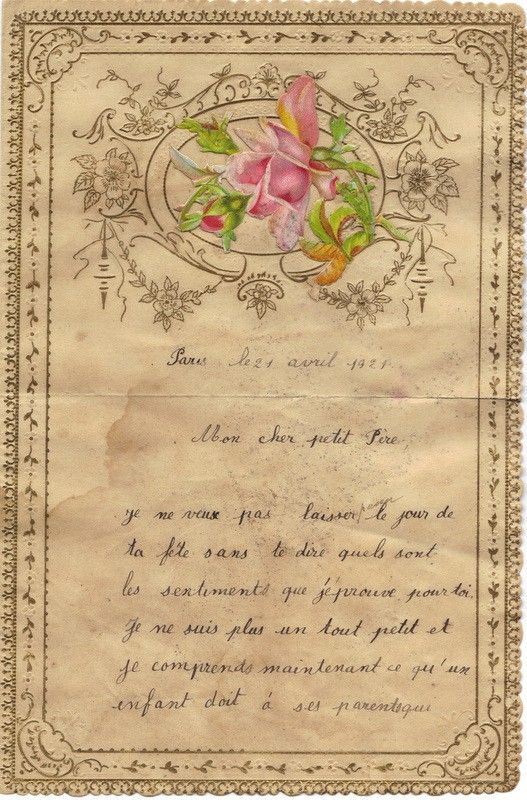 Paris le 21 avril 1921
Mon cher petit Père,
Je ne veux pas laisser passer le jour de
ta fête sans te dire quels sont
les sentiments que j'éprouve pour toi.
Je ne suis plus un tout petit et
je comprends maintenant ce qu'un
enfant doit à ses parents qui